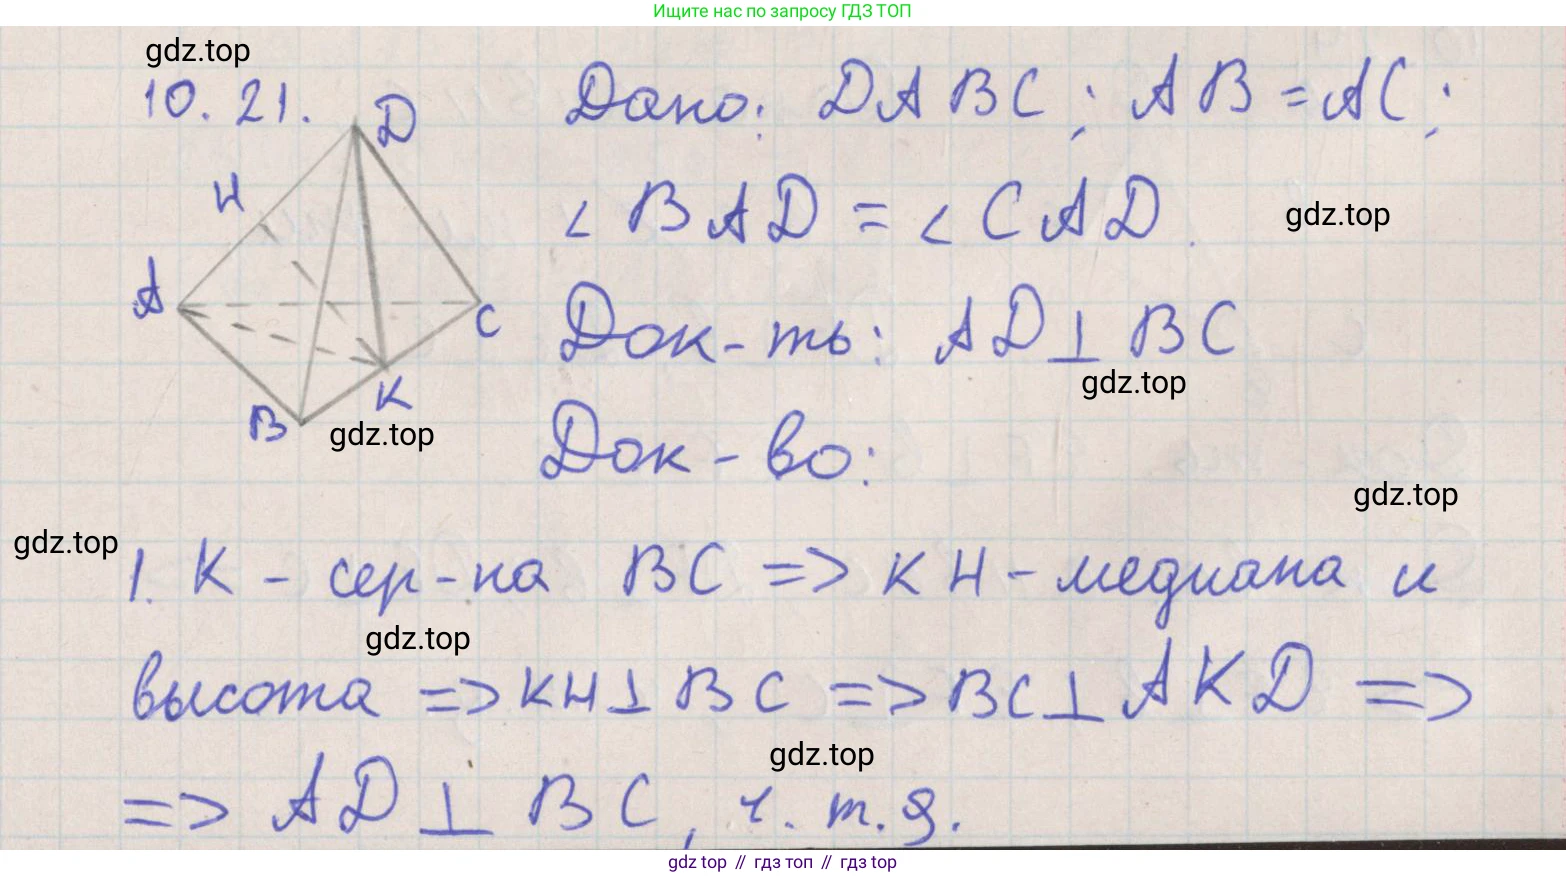 Ищите нас по запросу ГДЗ ТОП
gdz.top
10.21.
D
H
A
C
K
B
gdz.top
Дано: DABC; AB = AC;
∠BAD = ∠CAD.
gdz.top
Док-ть: AD⊥BC
gdz.top
Док-во:
gdz.top
gdz.top
1. K - сер-на BC => KH - медиана и
gdz.top
высота => KH⊥BC => BC⊥AKD =>
gdz.top
=> AD⊥BC, ч.т.д.
gdz top // гдз топ // гдз top